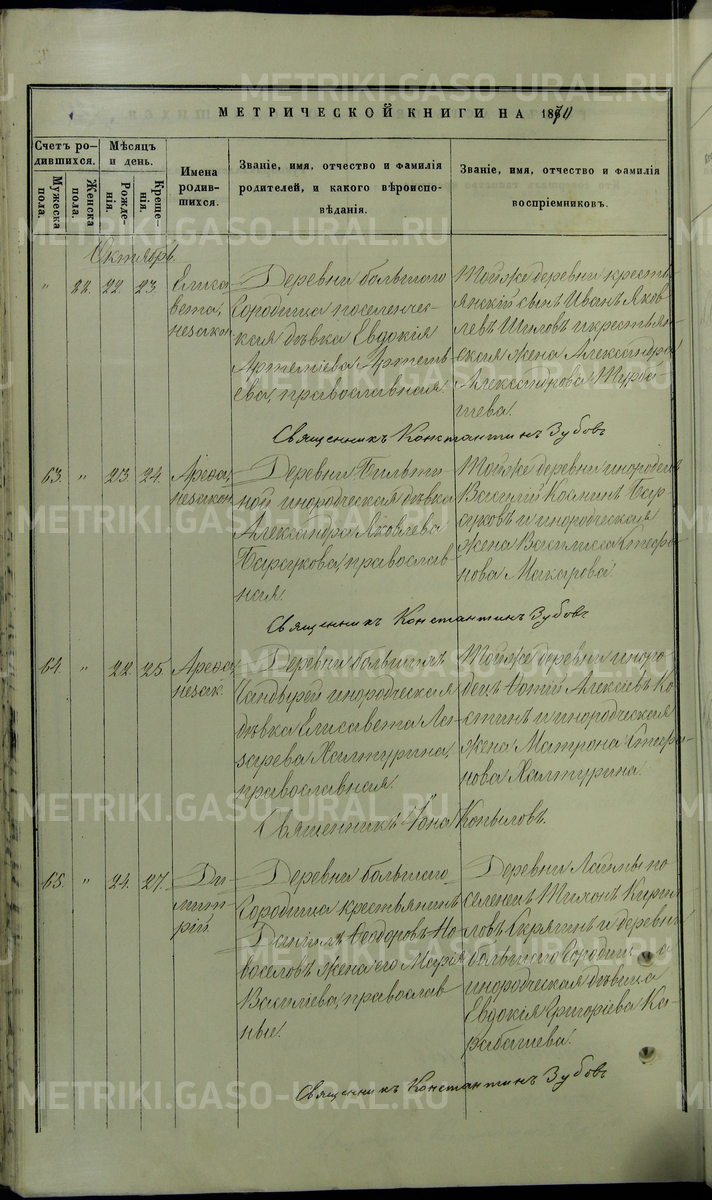 METRIKI.GASO-URAL.RU
МЕТРИЧЕСКОЙ КНИГИ НА 1870
Счетъ ро-
дившихся.
Мужеска
пола.
Женска
пола.
Мѣсяцъ
и день.
Рожде-
нія.
Креще-
нія.
Имена
родив-
шихся.
Званіе, имя, отчество и фамилія
родителей, и какого вѣроиспо-
вѣданія.
Званіе, имя, отчество и фамилія
воспріемниковъ.
Октябрь.
" 22. 22. 23.
Елиса
вета,
незакон.
Деревни большаго
Городища поселенчес-
кая дѣвка Евдокія
Артеміева Артемь-
ева, православная.
Той же деревни кресть
янскій сынъ Иванъ Яков
левъ Шиловъ и крестьян-
ская жена Александра
шева.
Священникъ Константинъ Зубовъ
63. " 23. 24.
Арефа,
незакон.
Деревни
ной инородческая дѣвка
Александра Яковлева
Барсукова, православ-
ная.
Той же деревни инородецъ
Василий Козминъ Бар-
суковъ и инородческая
жена Василисса Стефа-
нова Макарова.
Священникъ Константинъ Зубовъ
64. " 22. 25.
Арефа,
незак.
Деревни большихъ
инородческая
дѣвка Елисавета Ла-
зарева Халтурина,
православная.
Той же деревни иноро-
децъ Фотій Алексѣевъ Ко-
стинъ и инородческая
жена Матрона Стефа-
нова Халтурина.
Священникъ Іона Копыловъ.
65. " 24. 27.
Ди
мит-
рій.
Деревни большаго
Городища крестьянинъ
Даніилъ Ѳеодоровъ Но-
воселовъ жена его Марія
Василіева, православ
ные.
Деревни Лаймы по
селенецъ Тихонъ Кирил
ловъ Скрягинъ и деревни
большаго Городища
инородческая дѣвица
Евдокія Григоріева Ка-
рабашева.
Священникъ Константинъ Зубовъ